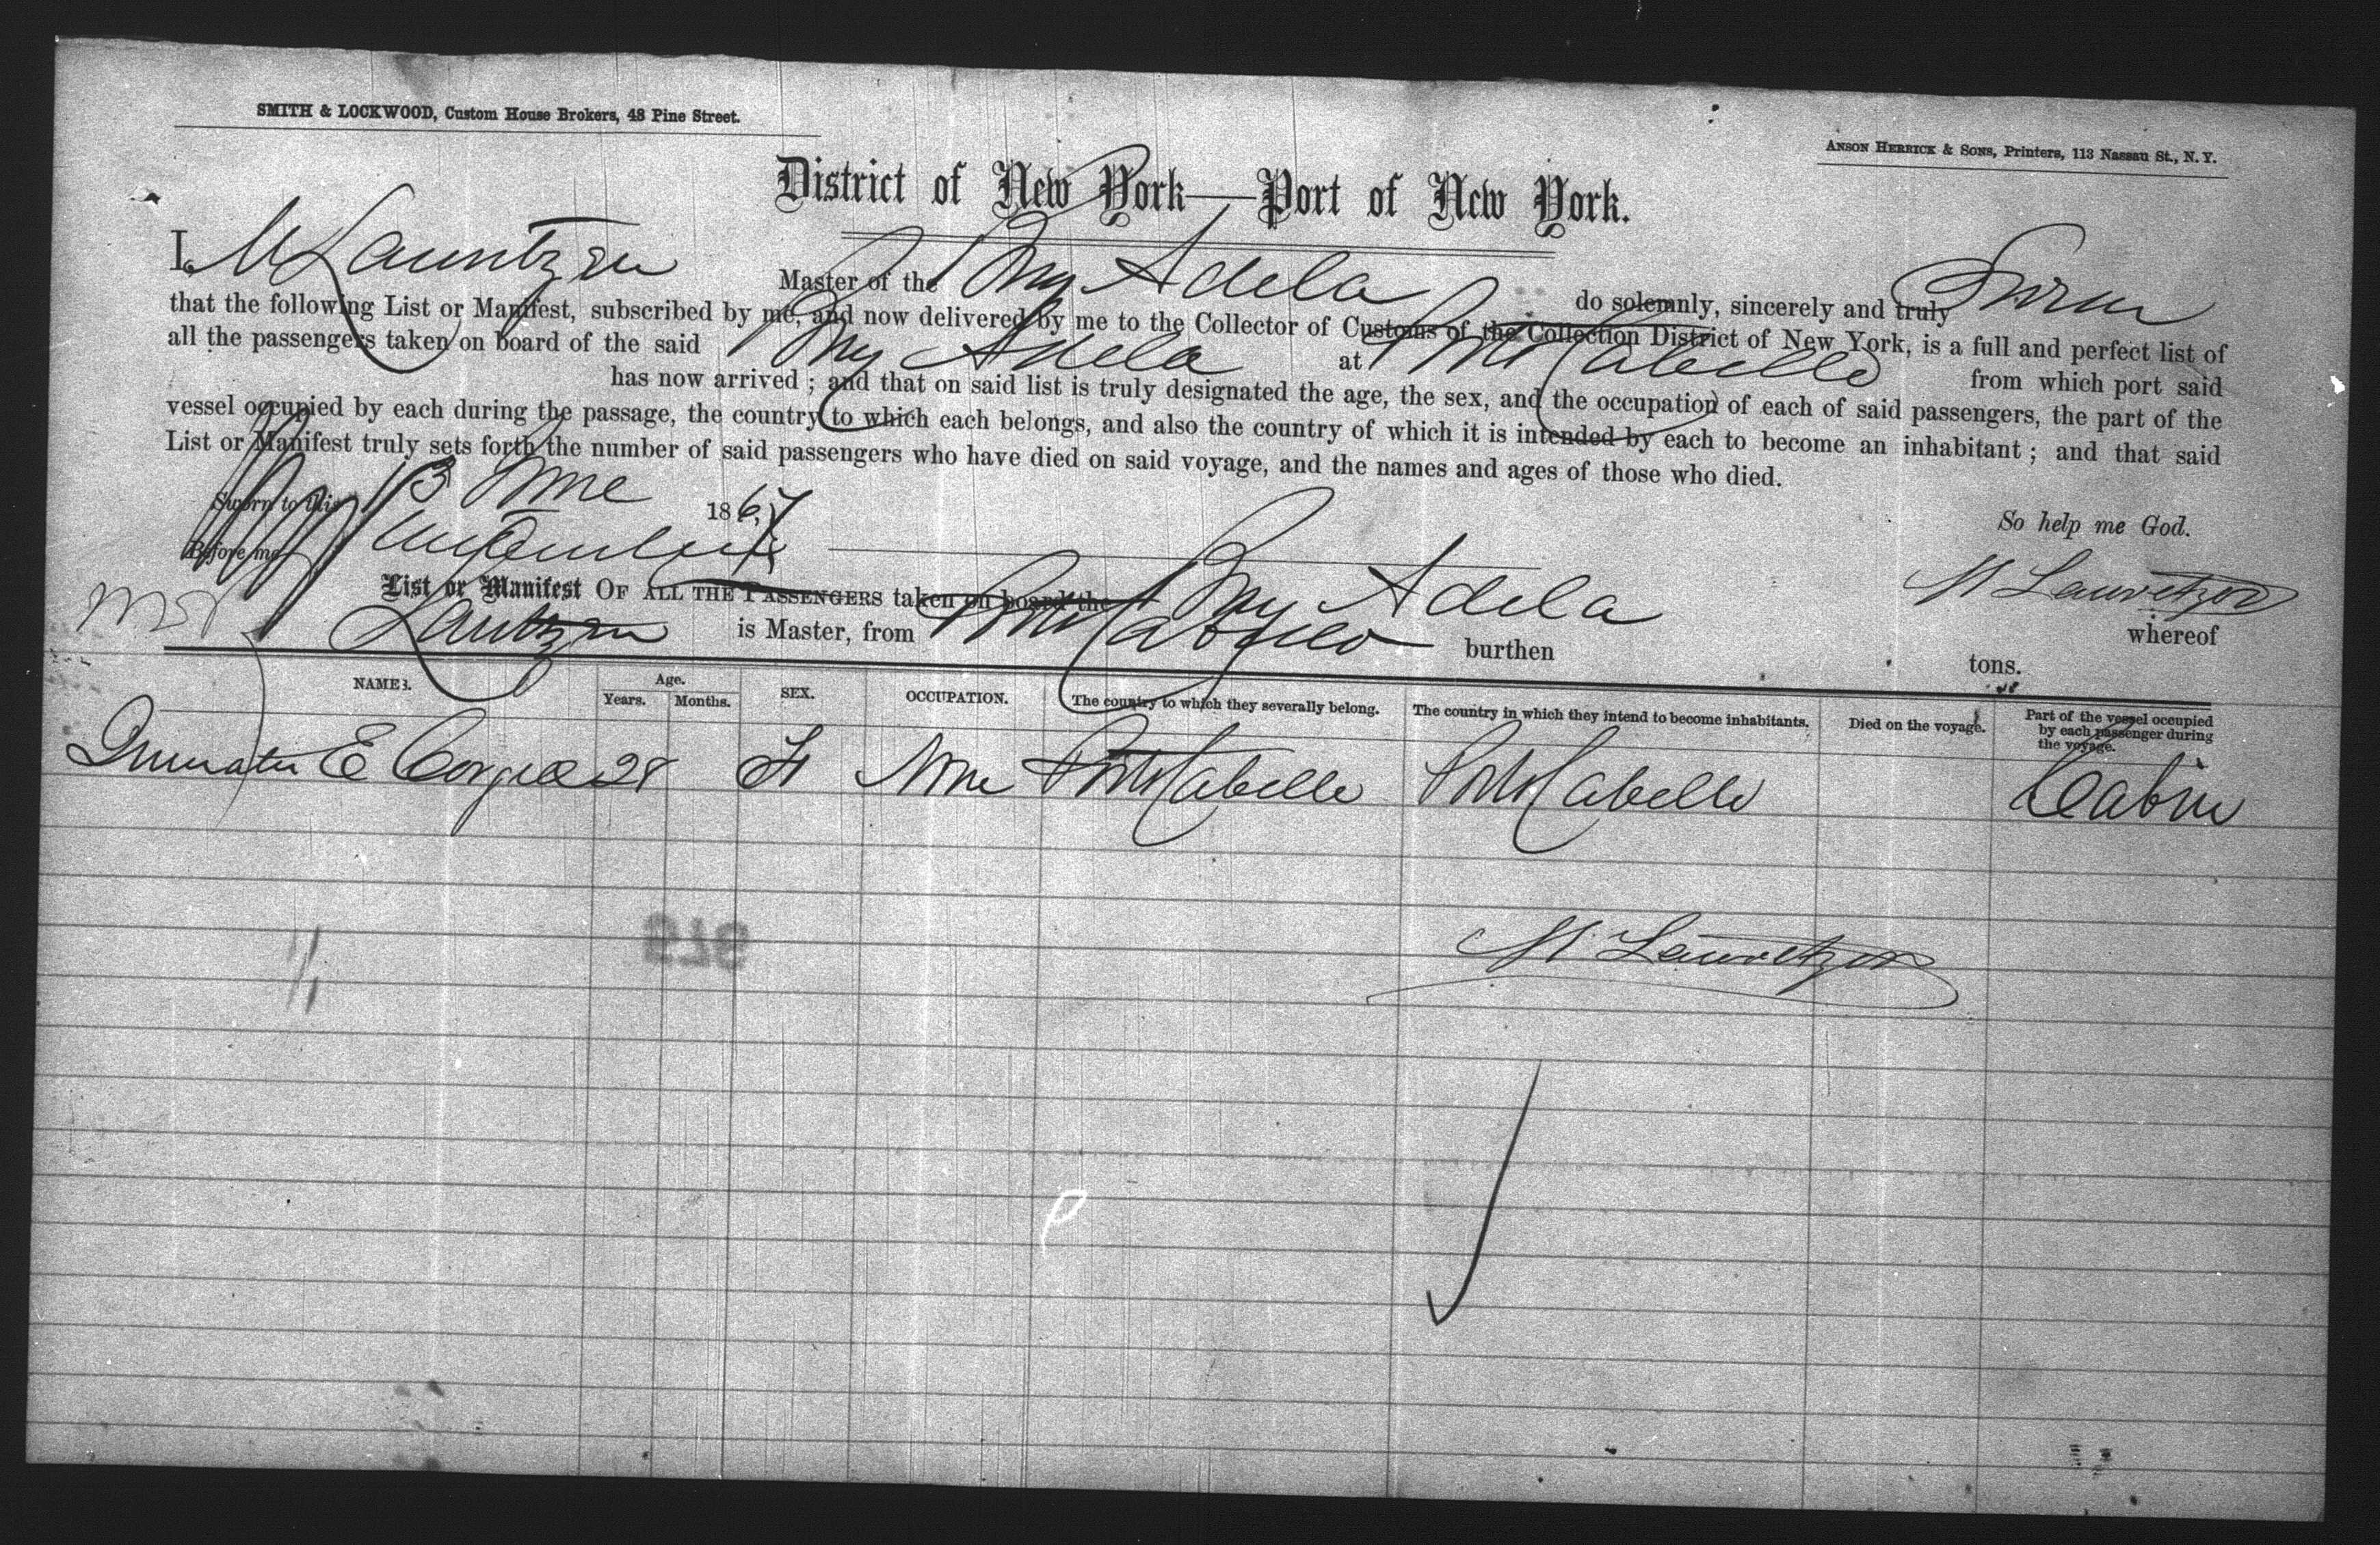 SMITH & LOCKWOOD, Custom House Brokers, 48 Pine Street.
ANSON HERRICK & SONS, Printers, 113 Nassau St., N. Y.
District of New York—Port of New York.
I, M Lauritzen Master of the Brig Adela do solemnly, sincerely and truly Swear
that the following List or Manifest, subscribed by me, and now delivered by me to the Collector of Customs of the Collection District of New York, is a full and perfect list of
all the passengers taken on board of the said Brig Adela at Porto Cabello from which port said
has now arrived ; and that on said list is truly designated the age, the sex, and the occupation of each of said passengers, the part of the
vessel occupied by each during the passage, the country to which each belongs, and also the country of which it is intended by each to become an inhabitant ; and that said
List or Manifest truly sets forth the number of said passengers who have died on said voyage, and the names and ages of those who died.
Sworn to this 13 June 1867
So help me God.
Before me
M Lauritzen
List or Manifest OF ALL THE PASSENGERS taken on board the Brig Adela whereof
Lauritzen is Master, from Porto Cabello burthen tons.
NAMES. Age. Years. Months. SEX. OCCUPATION. The country to which they severally belong. The country in which they intend to become inhabitants. Died on the voyage. Part of the vessel occupied by each passenger during the voyage.
E 28 F None Porto Cabello Porto Cabello Cabin
M Lauritzen